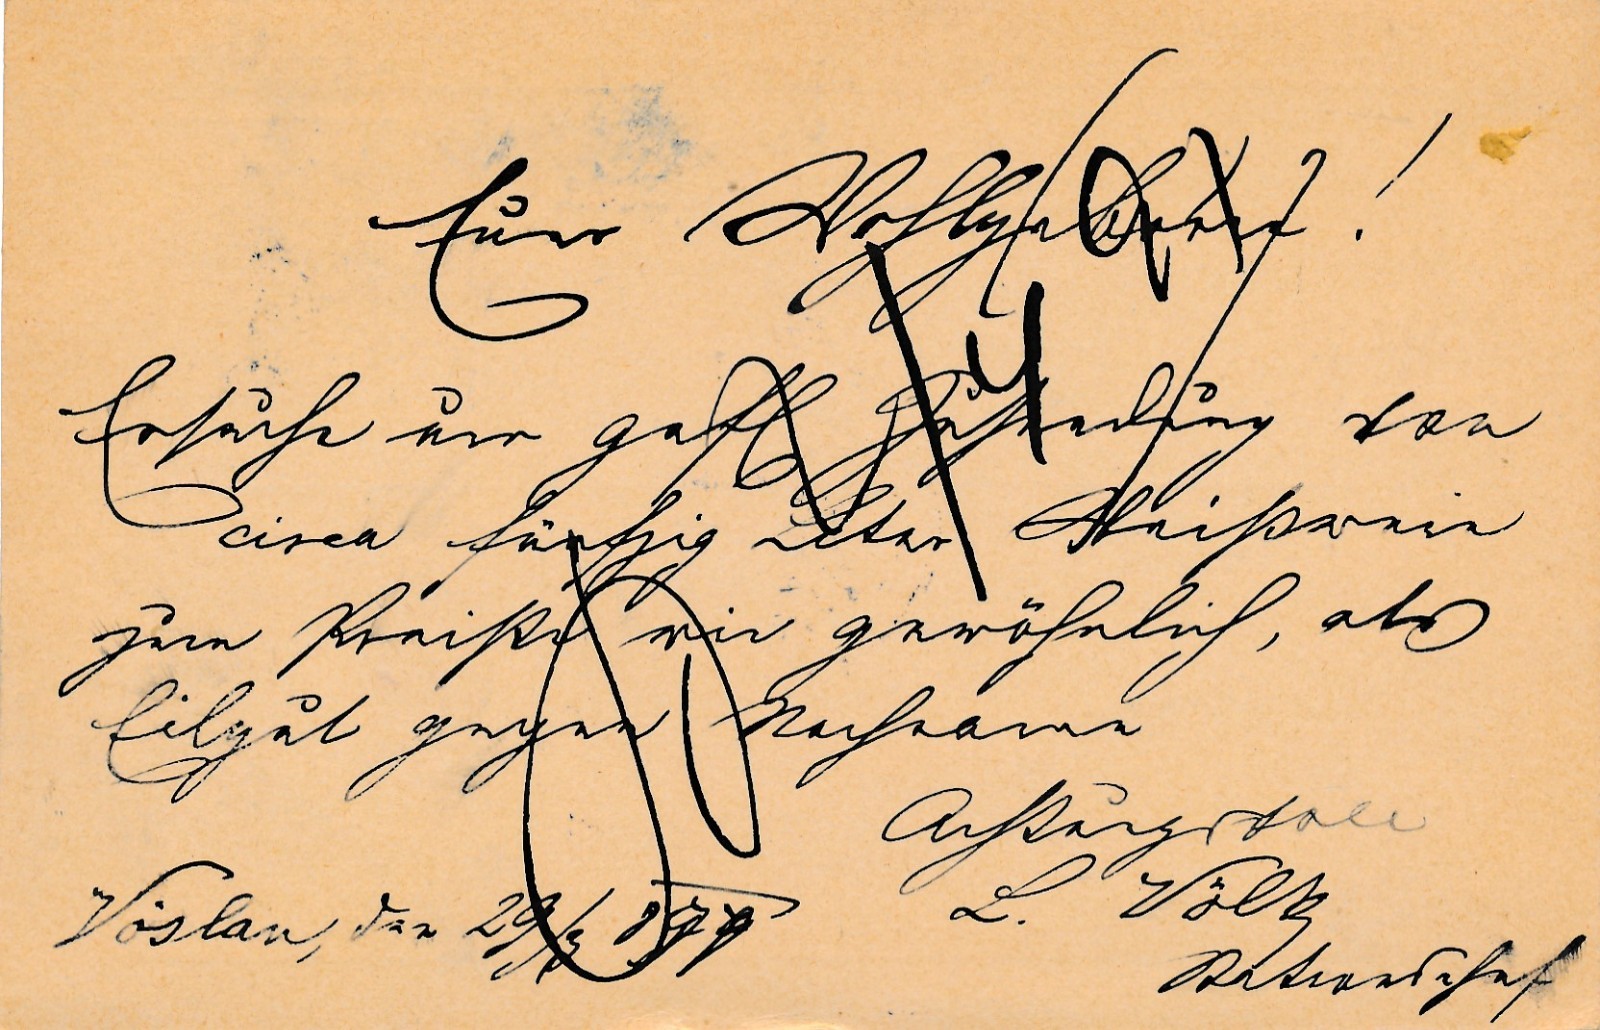 Euer Wohlgeboren!
Ersuche um gefl Zusendung von
circa fünfzig Liter Weißwein
zum Preiße wie gewöhnlich, als
Eilgut gegen Nachname
Achtungsvoll
L. Völtz
Vöslau, den 29/3
Stationschef